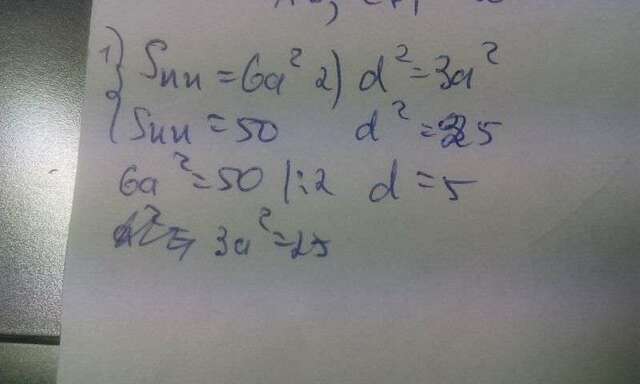 1) Sпп = 6a² 2) d² = 3a²
Sпп = 50 d² = 25
6a² = 50 |:2 d = 5
3a² = 25